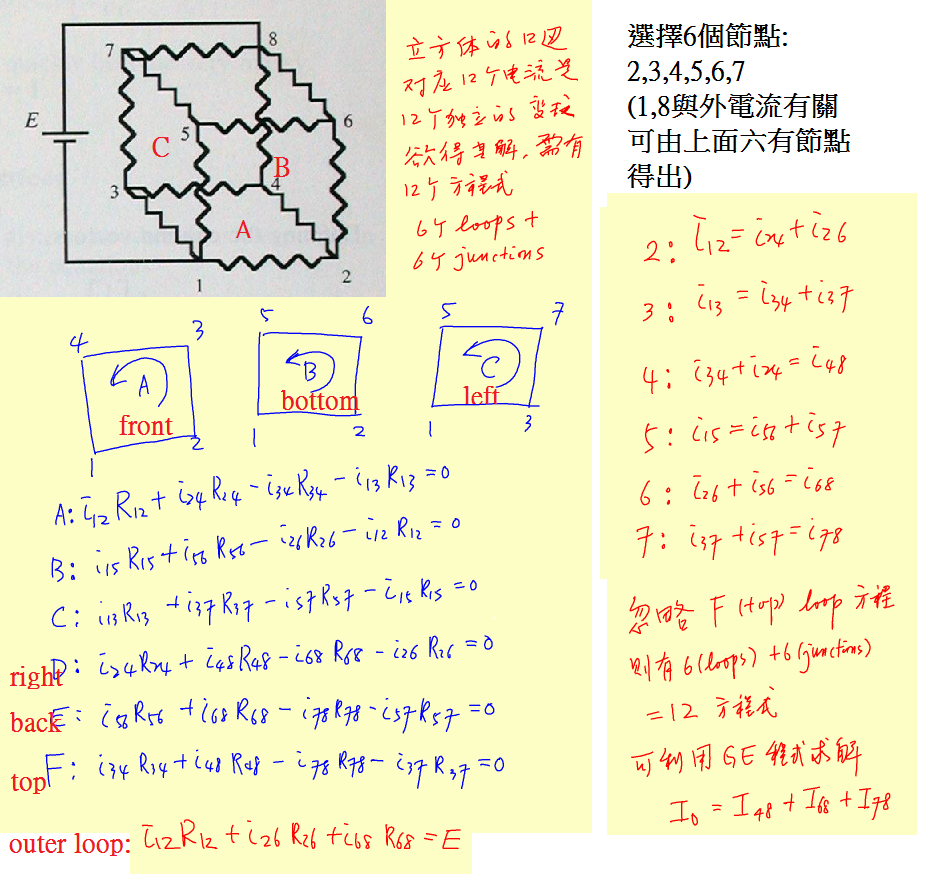 7
8
E
5
6
C
B
3
4
A
1
2
立方体的12边
对应12个电流是
12个独立的变数
欲得其解,需有
12个方程式
6个loops +
6个junctions
選擇6個節點:
2,3,4,5,6,7
(1,8與外電流有關
可由上面六有節點
得出)
4 3
A
front
1 2
5 6
B
bottom
1 2
5 7
C
left
1 3
A: i12 R12 + i24 R24 - i34 R34 - i13 R13 = 0
B: i15 R15 + i56 R56 - i26 R26 - i12 R12 = 0
C: i13 R13 + i37 R37 - i57 R57 - i15 R15 = 0
right D: i24 R24 + i48 R48 - i68 R68 - i26 R26 = 0
back E: i56 R56 + i68 R68 - i78 R78 - i57 R57 = 0
top F: i34 R34 + i48 R48 - i78 R78 - i37 R37 = 0
outer loop: i12 R12 + i26 R26 + i68 R68 = E
2: i12 = i24 + i26
3: i13 = i34 + i37
4: i34 + i24 = i48
5: i15 = i56 + i57
6: i26 + i56 = i68
7: i37 + i57 = i78
忽略 F (top) loop 方程
则有 6(loops) + 6(junctions)
= 12 方程式
可利用 GE 程式求解
I0 = I48 + I68 + I78